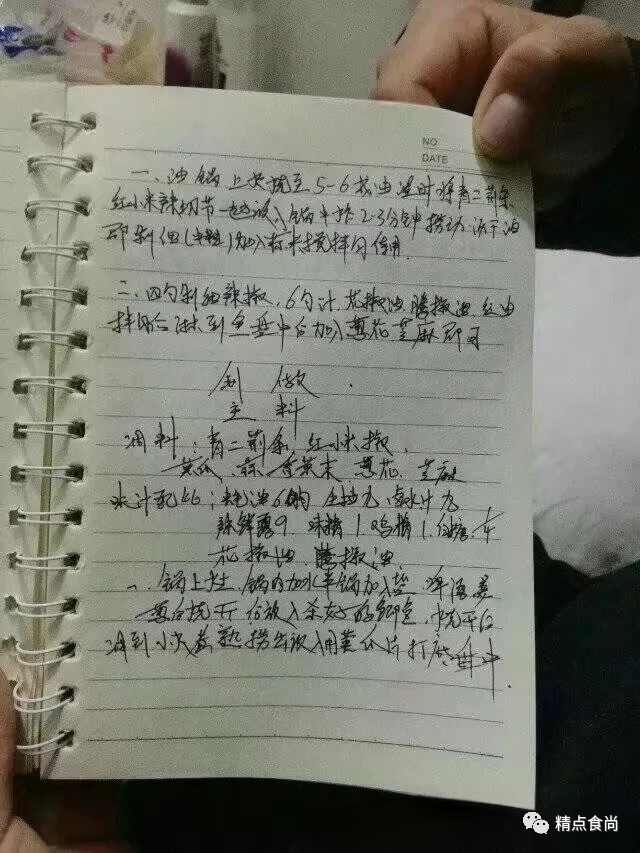 NO
DATE
一、油锅上火烧至5-6成油温时将青二荆条
红小米辣切节一起放入锅中炸2-3分钟捞出沥干油
即剁细(颗粒)加入搅拌匀待用.
二.四勺剁细辣椒,6勺汁,花椒油,藤椒油,红油
拌匀后淋到鱼盘中后加入葱花芝麻即可
制 做
主 料
调料:青二荆条 红小米椒.
黄瓜 蒜 香菜末 葱花 芝麻
水汁配比:
辣鲜露9 味精1 鸡精1.白糖
花椒油.藤椒油
一.锅上火,锅内加水半锅加入盐,姜
葱后烧开后放入杀好的鲫鱼.烧开后
调到小火煮熟捞出放入用黄瓜片打底盘中.
精点食尚